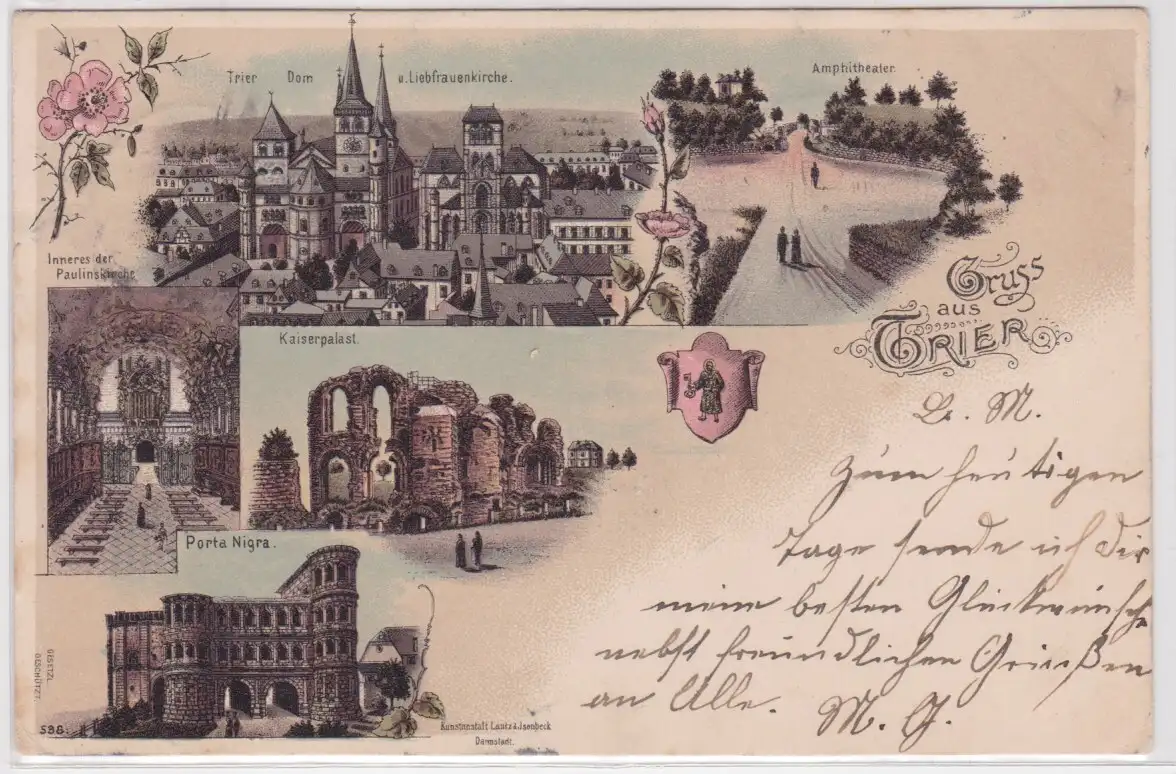 Trier Dom u. Liebfrauenkirche.
Amphitheater.
Inneres der
Paulinskirche
Kaiserpalast.
Gruss
aus
TRIER
Porta Nigra.
L. M.
Zum heutigen
Tage sende ich dir
meine besten Glückwünsche
nebst freundlichen Grüßen
an Alle. M. J.
GESETZL.
GESCHÜTZT
598.
Kunstanstalt Lautz & Isenbeck
Darmstadt.